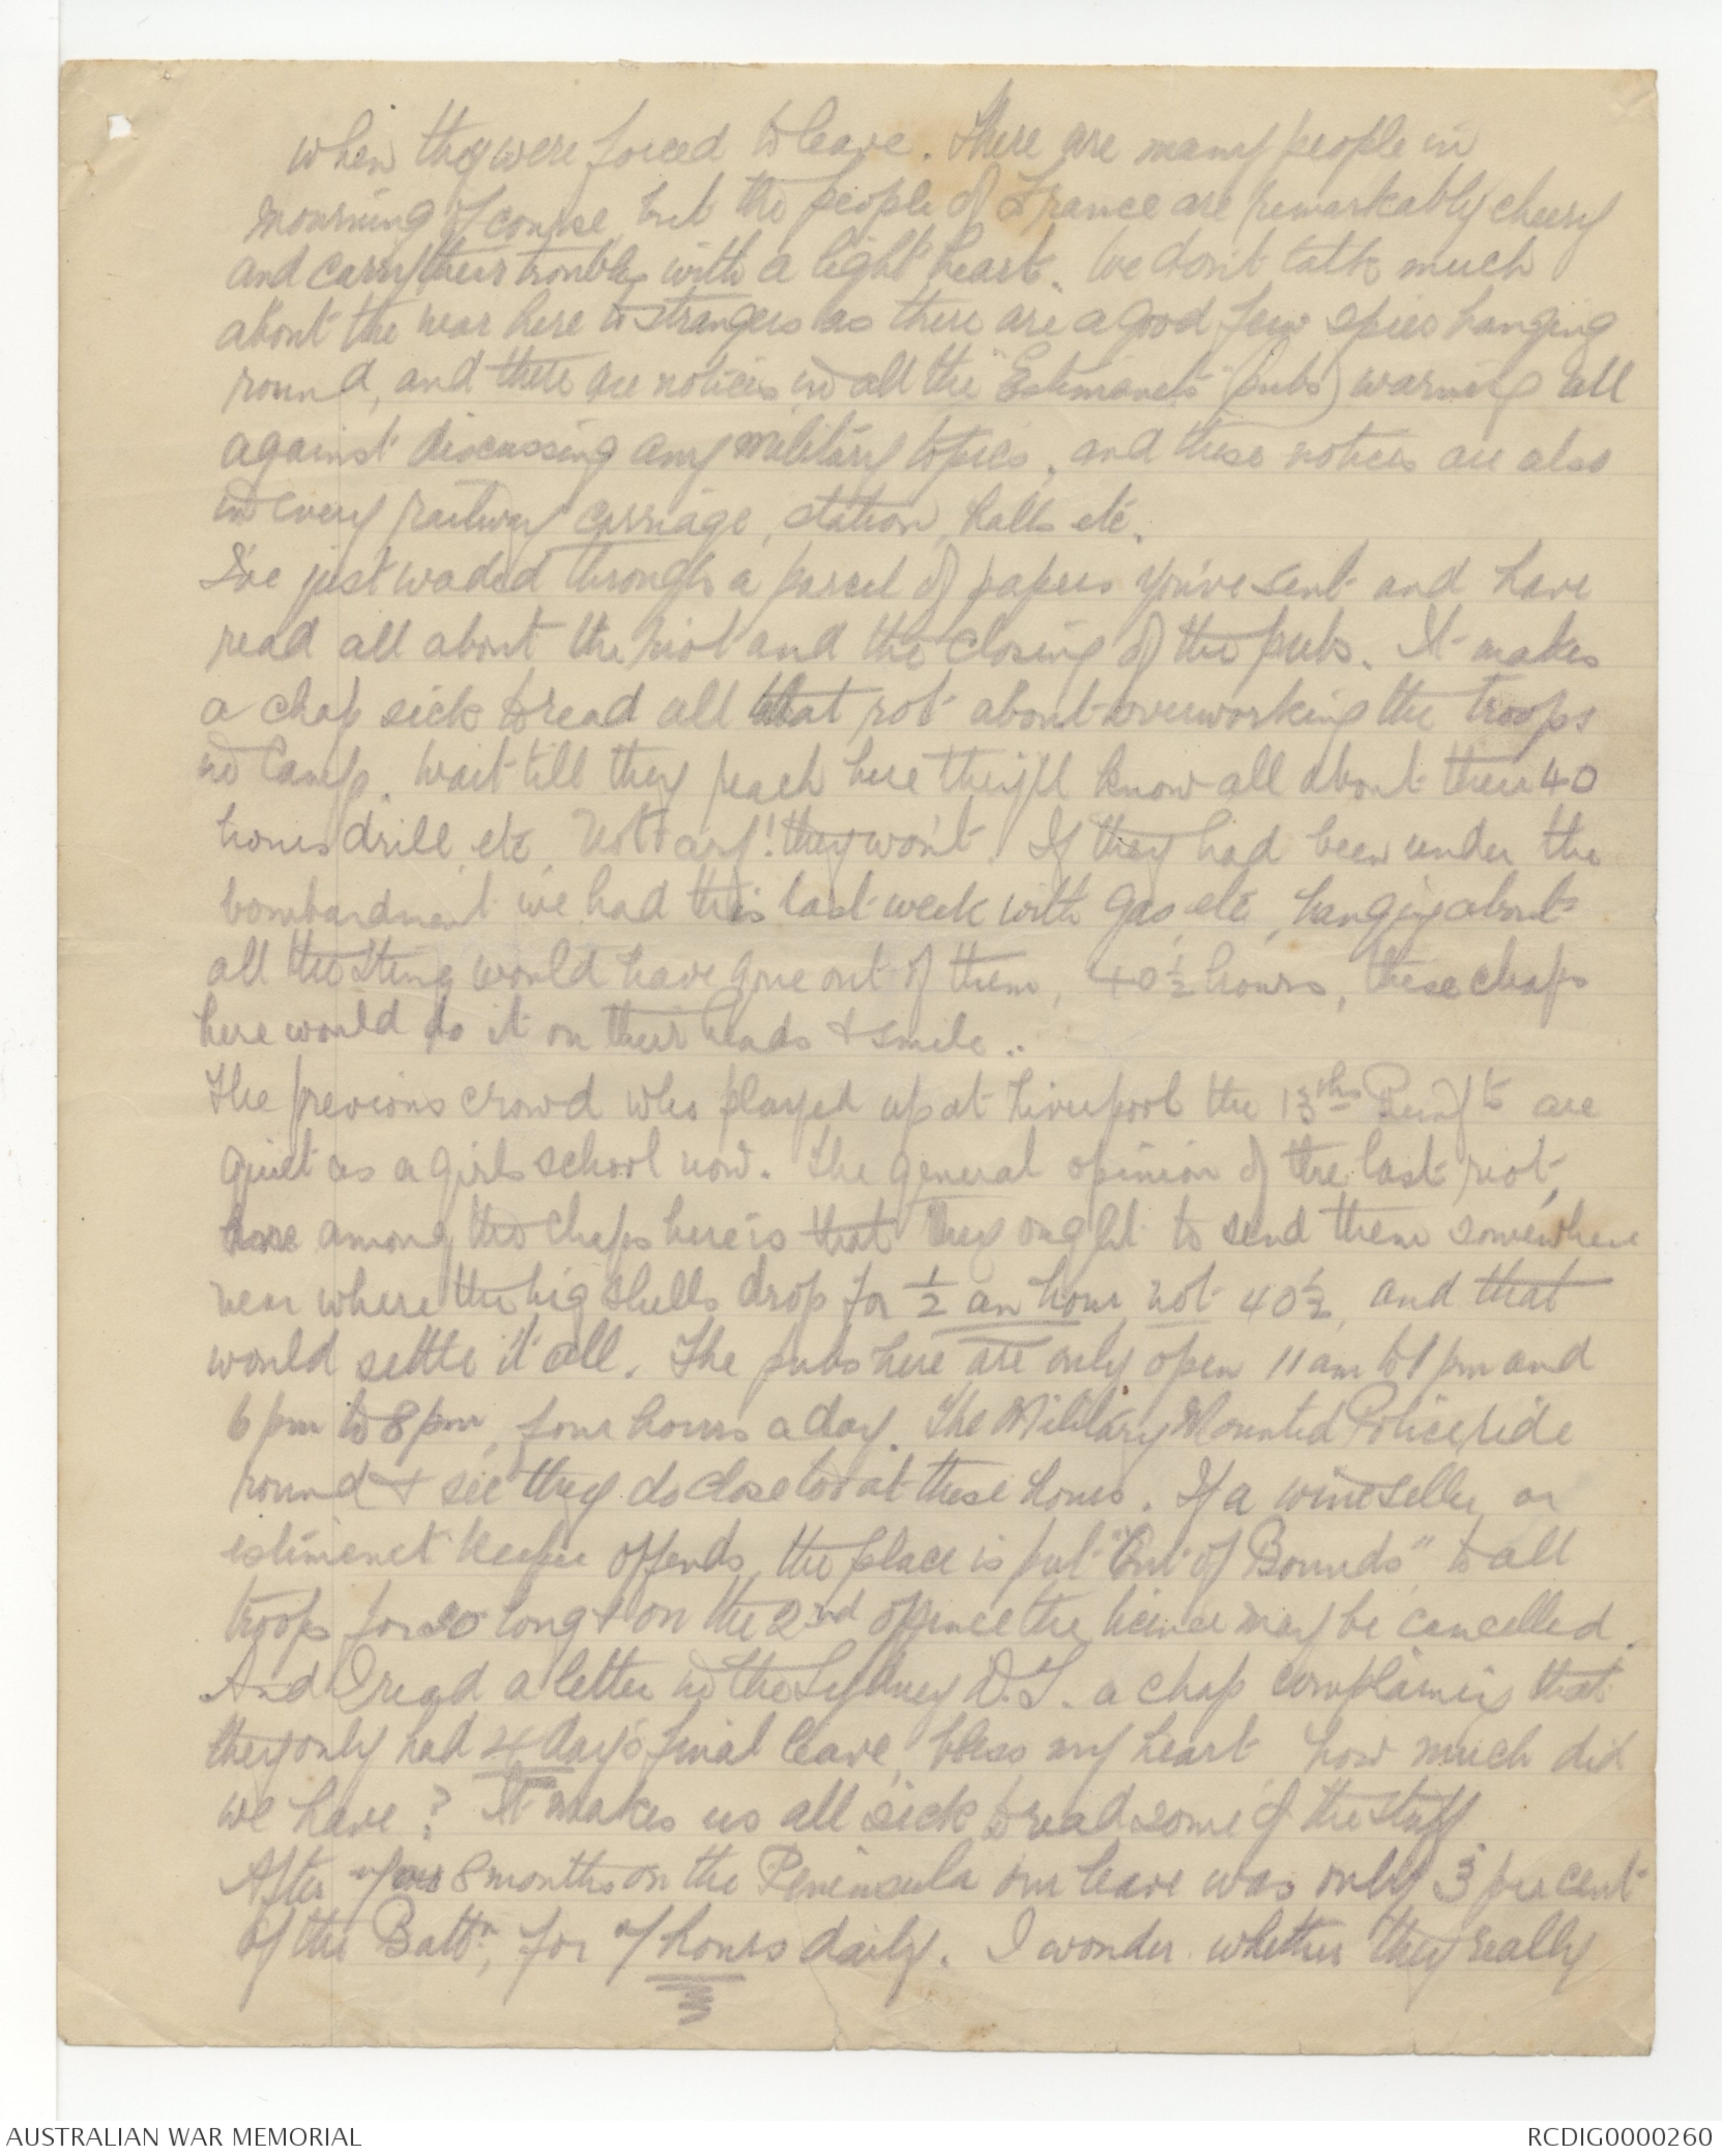 when they were forced to leave. There are many people in
mourning of course, but the people of France are remarkably cheery
and carry their troubles with a light heart. We don't talk much
about the war here to strangers as there are a good few spies hanging
round, and there are notices in all the "Estiminets" (pubs) warning all
against discussing any military topics, and these notices are also
in every railway carriage, station, halls etc.
I've just waded through a parcel of papers you've sent and have
read all about the riot and the closing of the pubs. It makes
a chap sick to read all that rot about overworking the troops
in Camp. Wait till they reach here they'll know all about their 40
hours drill etc. Not arf! they won't. If they had been under the
bombardment we had this last week with gas etc, hanging about
all the sting would have gone out of them, 40½ hours, these chaps
here would do it on their heads & smile..
The previous crowd who played up at Liverpool the 13ths Reinfts are
quiet as a girls school now. The general opinion of the last riot,
among the chaps here is that they ought to send them somewhere
near where the big shells drop for ½ an hour not 40½, and that
would settle it all. The pubs here are only open 11 am to 1 pm and
6 pm to 8 pm, four hours a day. The Military Mounted Police ride
round & see they do close too at these hours. If a wineseller or
estimenet keeper offends, the place is put "Out of Bounds" to all
troops for so long & on the 2nd offence the licence may be cancelled.
And I read a letter in the Sydney D.T. a chap complaining that
they only had 4 day's final leave, bless my heart how much did
we have? It makes us all sick to read some of the stuff
After 8 months on the Peninsula our leave was only 3 per cent
of the Battn, for 7 hours daily. I wonder whether they really
AUSTRALIAN WAR MEMORIAL
RCDIG0000260